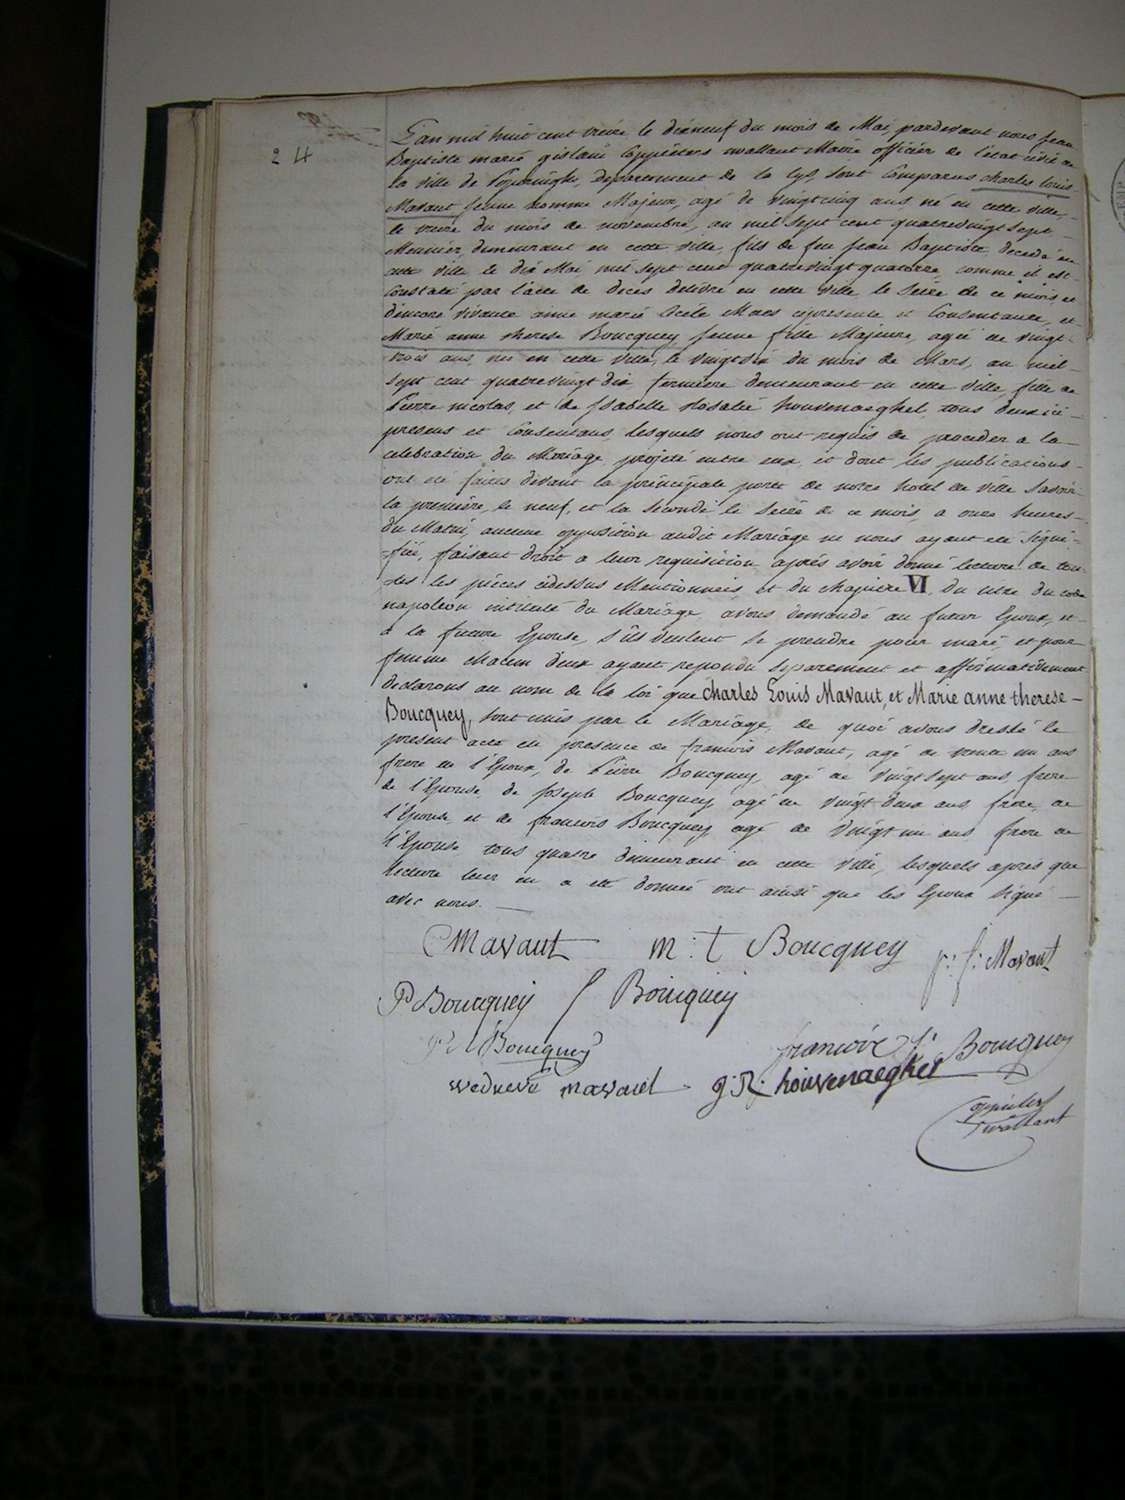 24
L'an mil huit cent treize le dixneuf du mois de Mai pardevant nous jean
Baptiste marie gislain Coppieters wallant Maire officier de l'état civil de
la ville de Poperinghe, departement de la Lys sont Comparus charles Louis
Mavaut jeune homme Majeur, agé de vingtcinq ans né en cette ville,
le treize du mois de novembre, an mil sept cent quatrevingt sept
Meunier, demeurant en cette ville, fils de feu jean Baptiste, decedé en
cette ville le dix Mai mil sept cent quatrevingt quatorze, comme il est
Constaté par l'acte de deces delivré en cette ville le seize de ce mois et
d'encore vivante anne marie Cecile Maes cipresente et Consentante, et
Marie anne therese Boucquey jeune fille Majeure, agée de vingt-
trois ans, née en cette ville, le vingtdix du mois de Mars, an mil
sept cent quatrevingt dix fermiere demeurant en cette ville fille de
Pierre nicolas, et de Isabelle Rosalie houvenaeghel, tous deux ici
presens et Consentans, lesquels nous ont requis de proceder a la
celebration du Mariage projeté entre eux, et dont les publications
ont été faites devant la principale porte de notre hotel de ville Savoir
la premiere, le neuf, et la seconde le seize de ce mois, a onze heures
du Matin, aucune opposition audit Mariage ne nous ayant été signi-
-fiée, faisant droit a leur requisition, après avoir donné lecture de tou-
-tes les pièces cidessus Mentionnées et du chapitre VI du titre du code
napoléon intitulé du Mariage, avons demandé au futur Epoux, et
à la future Epouse, s'ils veulent se prendre pour mari, et pour
femme chacun d'eux ayant repondu separement et affirmativement
declarons au nom de la loi que charles Louis Mavaut, et Marie anne therese
Boucquey, sont unis par le Mariage, de quoi avons dressé le
present acte en presence de francois Mavaut, agé de trente un ans
frere de l'Epoux, de Pierre Boucquey, agé de vingtsept ans, frere
de l'Epouse, de Joseph Boucquey agé de vingt deux ans frere de
l'Epouse et de francois Boucquey agé de vingt un ans frere de
l'Epouse tous quatre demeurant en cette ville, lesquels après que
lecture leur en a été donnée ont ainsi que les Epoux signé
avec nous.
C Mavaut m: t Boucquey f: Mavaut
P Boucquey J Boucquey
P N Boucquey francois Boucquey
weduwe mavaut J: R: houvenaeghel
Coppieters
wallant